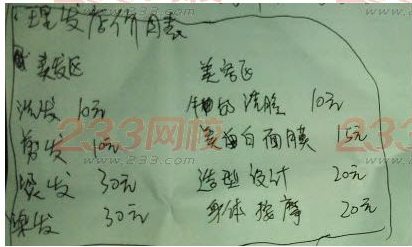 理发店价目表
美发区 美容区
洗发 10元 牛奶洗脸 10元
剪发 10元 白面膜 15元
烫发 30元 造型设计 20元
染发 30元 身体按摩 20元
233网校
www.233.com